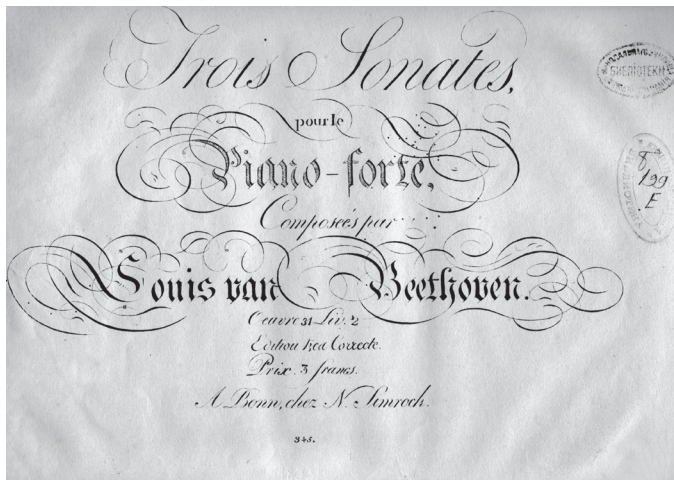 Trois Sonates,
pour le
Piano-forte,
Composeés par
Louis van Beethoven.
Oeuvre 31 Liv. 2
Edition tres Correcte.
Prix. 3 francs.
A Bonn, chez N. Simrock.
345.
8
199
E